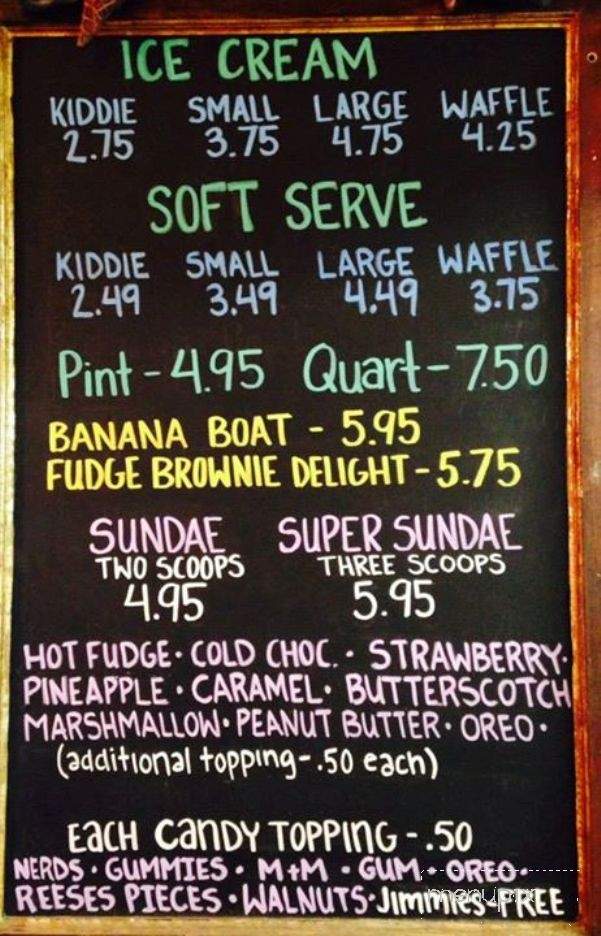 ICE CREAM
KIDDIE SMALL LARGE WAFFLE
2.75 3.75 4.75 4.25
SOFT SERVE
KIDDIE SMALL LARGE WAFFLE
2.49 3.49 4.49 3.75
Pint - 4.95 Quart - 7.50
BANANA BOAT - 5.95
FUDGE BROWNIE DELIGHT - 5.75
SUNDAE SUPER SUNDAE
TWO SCOOPS THREE SCOOPS
4.95 5.95
HOT FUDGE · COLD CHOC. · STRAWBERRY ·
PINEAPPLE · CARAMEL · BUTTERSCOTCH
MARSHMALLOW · PEANUT BUTTER · OREO ·
(additional topping - .50 each)
EACH CANDY TOPPING - .50
NERDS · GUMMIES · M+M · GUM · OREO ·
REESES PIECES · WALNUTS · Jimmies - FREE